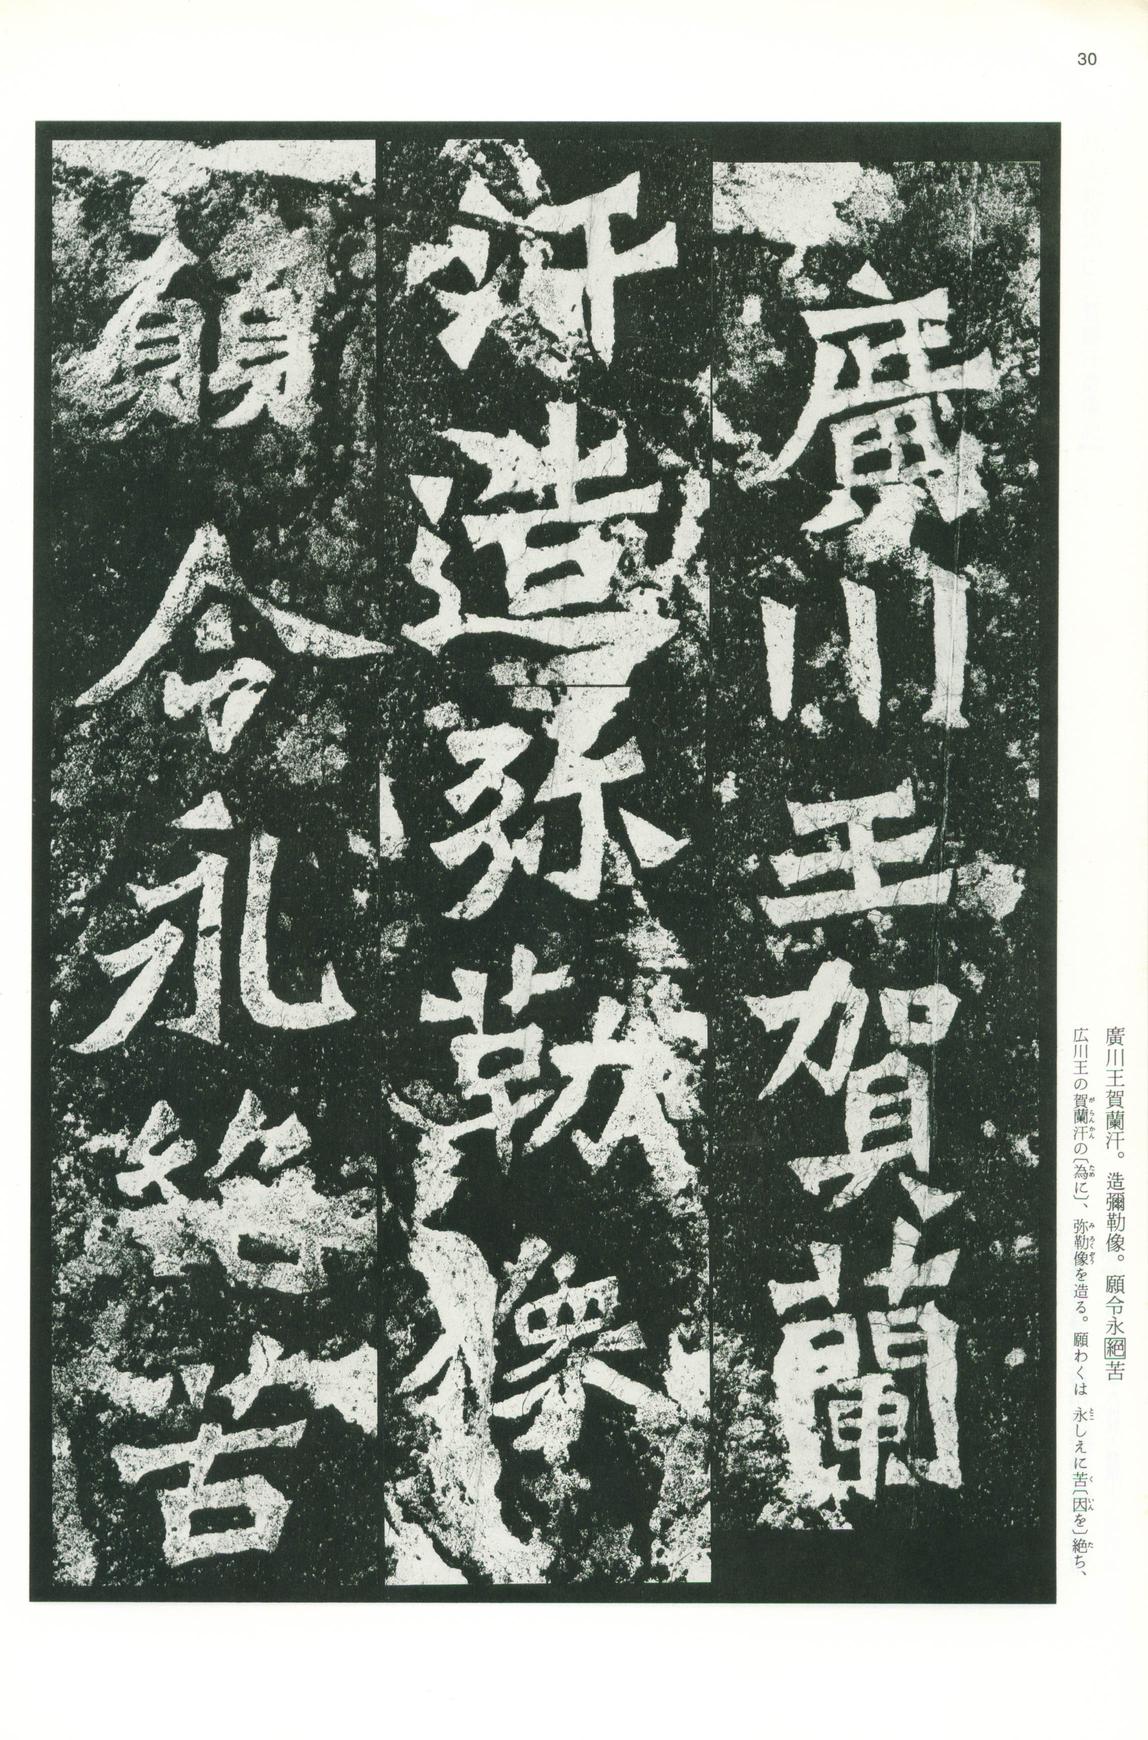 30
廣川王賀蘭
汗造弥勒像
願令永絕苦
廣川王賀蘭汗。造彌勒像。願令永絕苦
広川王の賀蘭汗の〔為に〕、弥勒像を造る。願わくは 永しえに苦〔因を〕絶ち、